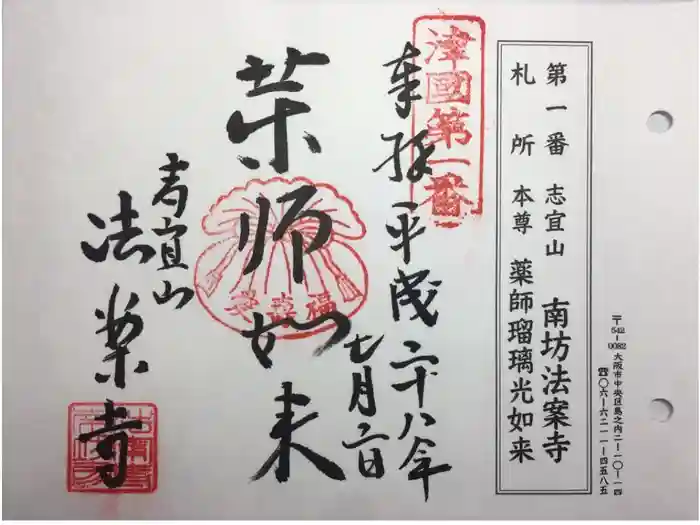 第一番 志宜山 南坊法案寺
札所 本尊 薬師瑠璃光如来
〒542-0082 大阪市中央区島之内二-一〇-一四
☎〇六-六二一一-四五八五
津國第一番
奉拝 平成二十八年
七月二日
薬師如来
志宜山
法案寺